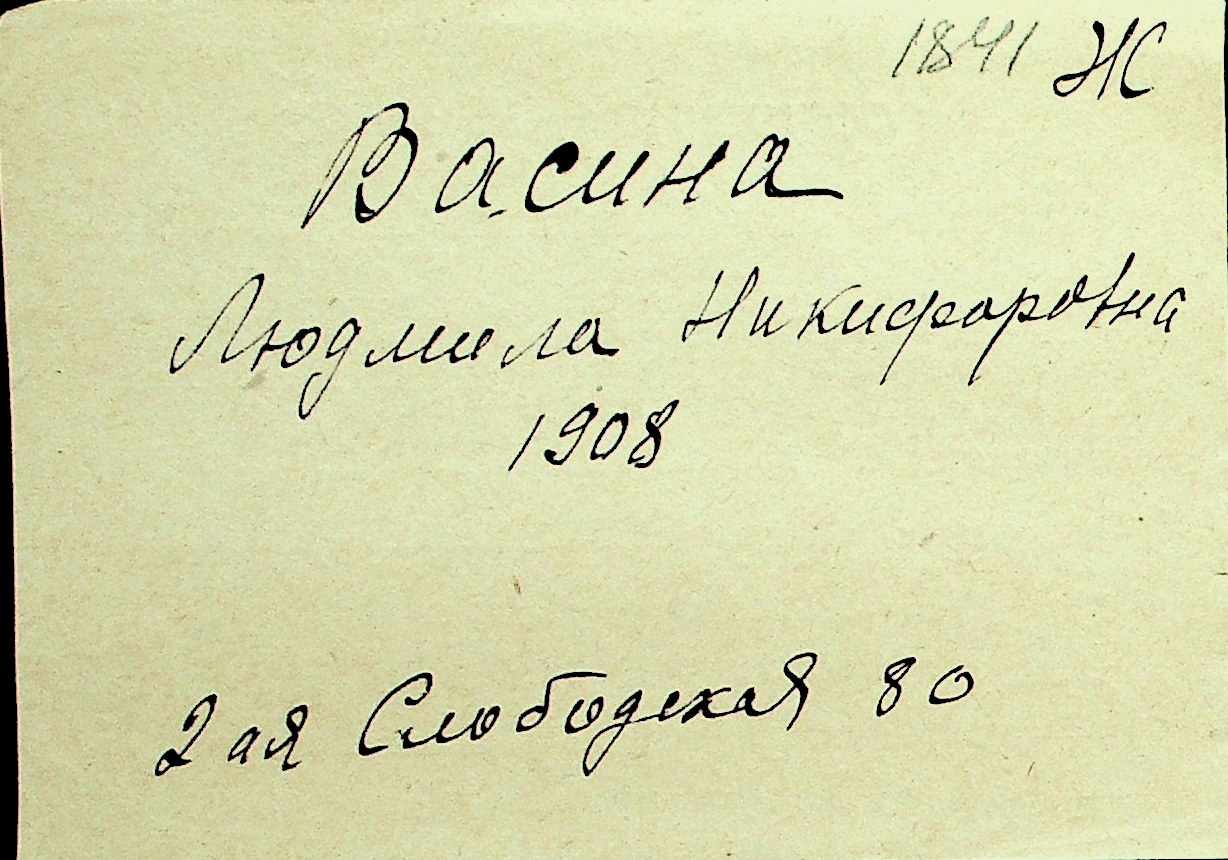 1841 Ж
Васина
Людмила Никифоровна
1908
2ая Слободская 80